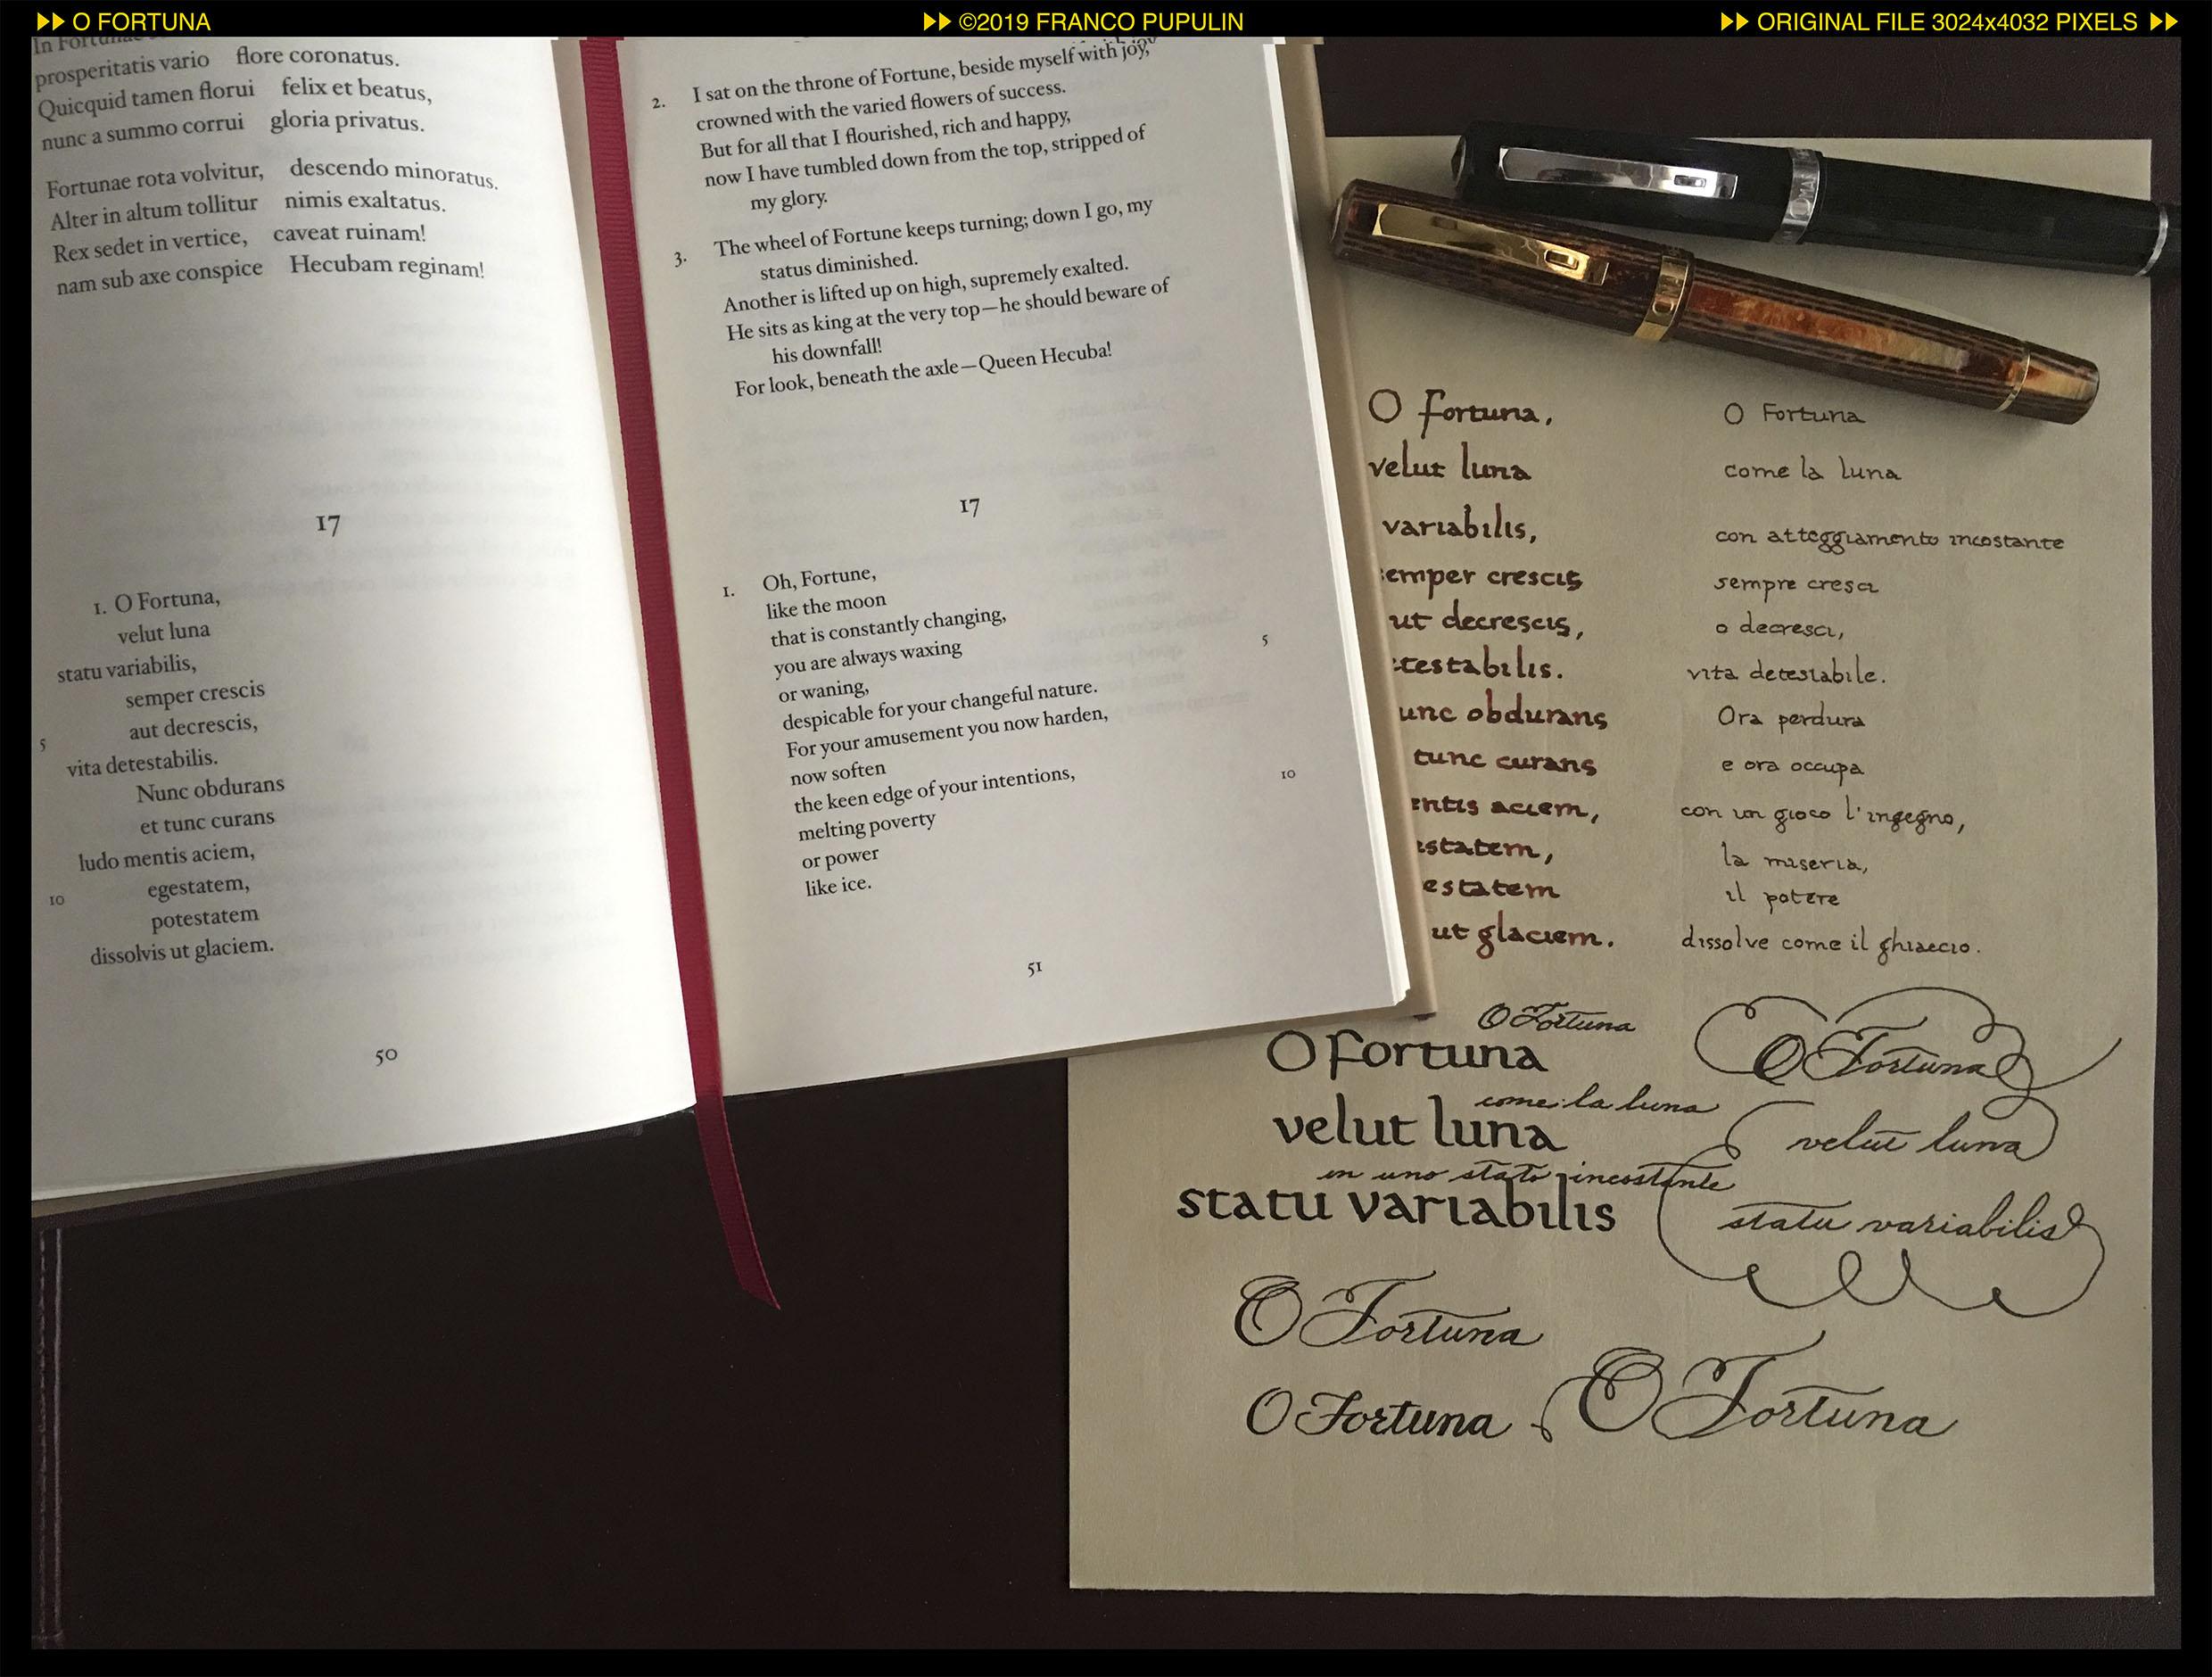 O FORTUNA
©2019 FRANCO PUPULIN
ORIGINAL FILE 3024x4032 PIXELS
In Fortunae
prosperitatis vario flore coronatus.
Quicquid tamen florui felix et beatus,
nunc a summo corrui gloria privatus.
Fortunae rota volvitur, descendo minoratus.
Alter in altum tollitur nimis exaltatus.
Rex sedet in vertice, caveat ruinam!
nam sub axe conspice Hecubam reginam!
17
1. O Fortuna,
velut luna
statu variabilis,
semper crescis
aut decrescis,
5 vita detestabilis.
Nunc obdurans
et tunc curans
ludo mentis aciem,
egestatem,
10 potestatem
dissolvis ut glaciem.
50
2. I sat on the throne of Fortune, beside myself with joy,
crowned with the varied flowers of success.
But for all that I flourished, rich and happy,
now I have tumbled down from the top, stripped of
my glory.
3. The wheel of Fortune keeps turning; down I go, my
status diminished.
Another is lifted up on high, supremely exalted.
He sits as king at the very top—he should beware of
his downfall!
For look, beneath the axle—Queen Hecuba!
17
1. Oh, Fortune,
like the moon
that is constantly changing,
you are always waxing
or waning, 5
despicable for your changeful nature.
For your amusement you now harden,
now soften
the keen edge of your intentions,
melting poverty 10
or power
like ice.
51
O fortuna,
velut luna
variabilis,
emper crescis
ut decrescis,
testabilis.
unc obdurans
tunc curans
entis aciem,
estatem,
estatem
ut glaciem.
O Fortuna
come la luna
con atteggiamento incostante
sempre cresci
o decresci,
vita detestabile.
Ora perdura
e ora occupa
con un gioco l'ingegno,
la miseria,
il potere
dissolve come il ghiaccio.
O Fortuna
O fortuna
come la luna
velut luna
in uno stato incostante
statu variabilis
O Fortuna
velut luna
statu variabilis
O Fortuna
O Fortuna
O Fortuna